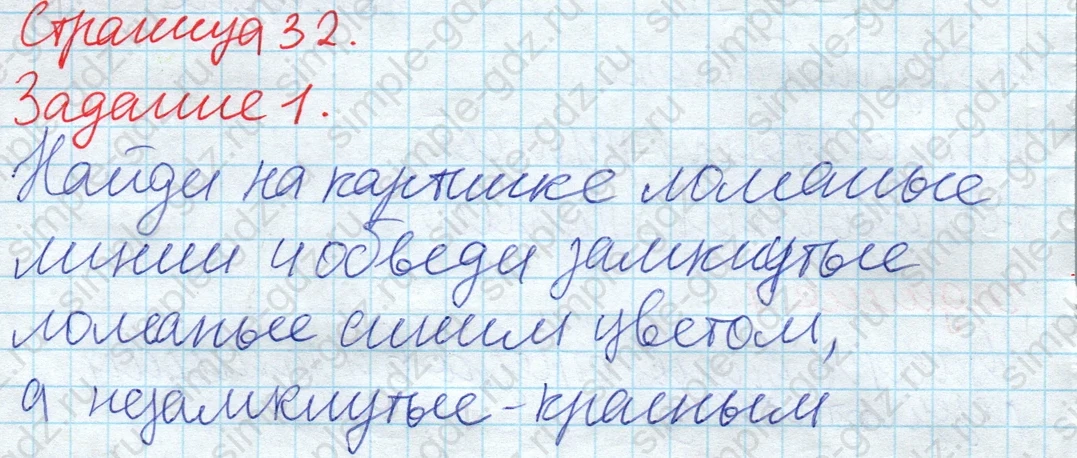 Страница 32.
Задание 1.
Найди на картинке ломаные
линии и обведи замкнутые
ломаные синим цветом,
а незамкнутые - красным
simple-gdz.ru